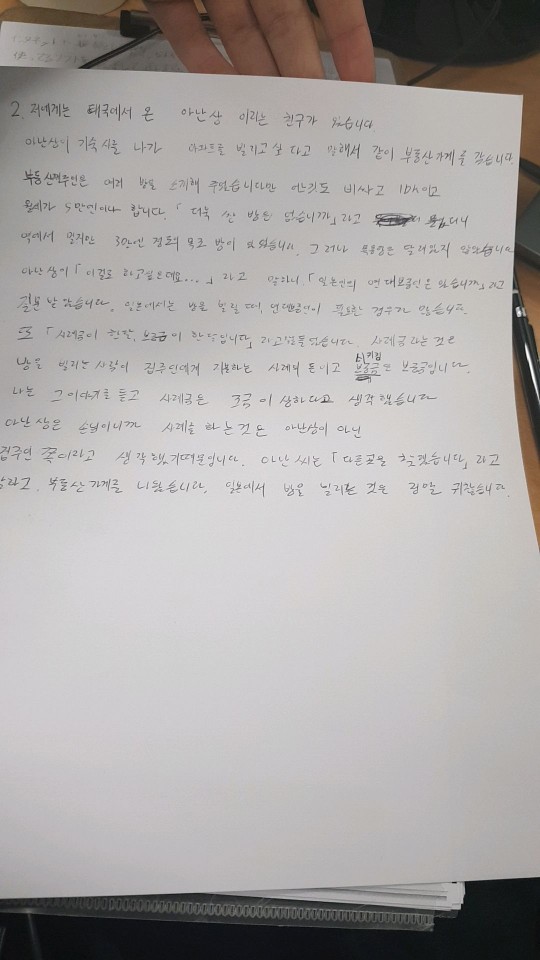 2. 저에게는 태국에서 온 아난상 이라는 친구가 있습니다.
아난상이 기숙사를 나가 아파트를 빌리고 싶다고 말해서 같이 부동산가게를 갔습니다.
부동산 주인은 여러 방을 소개해 주었습니다만 어느것도 비싸고 1DK이고
월세가 5만엔이나 합니다. 「더욱 싼 방은 없습니까」라고
역에서 멀지만 3만엔 정도의 목조 방이 있었습니다. 그러나 목욕탕은 달려있지 않았습니다
아난상이 「이걸로 하고싶은데요...」 라고 말하니, 「일본인의 연대보증인은 있습니까」라고
질문 받았습니다. 일본에서는 방을 빌릴 때, 연대보증인이 필요한 경우가 많습니다.
또 「사례금이 한달, 보증금이 한달입니다」라고 들었습니다. 사례금 라는 것은
방을 빌리는 사람이 집주인에게 지불하는 사례의 돈이고 시키킹 은 보증금입니다.
나는 그 이야기를 듣고 사례금은 조금 이상하다고 생각했습니다
아난 상은 손님이니까 사례를 하는 것은 아난상이 아닌
집주인 쪽이라고 생각했기때문입니다. 아난 씨는 「다른곳을 찾겠습니다」라고
말하고, 부동산 가게를 나왔습니다. 일본에서 방을 빌리는 것은 정말 귀찮습니다.